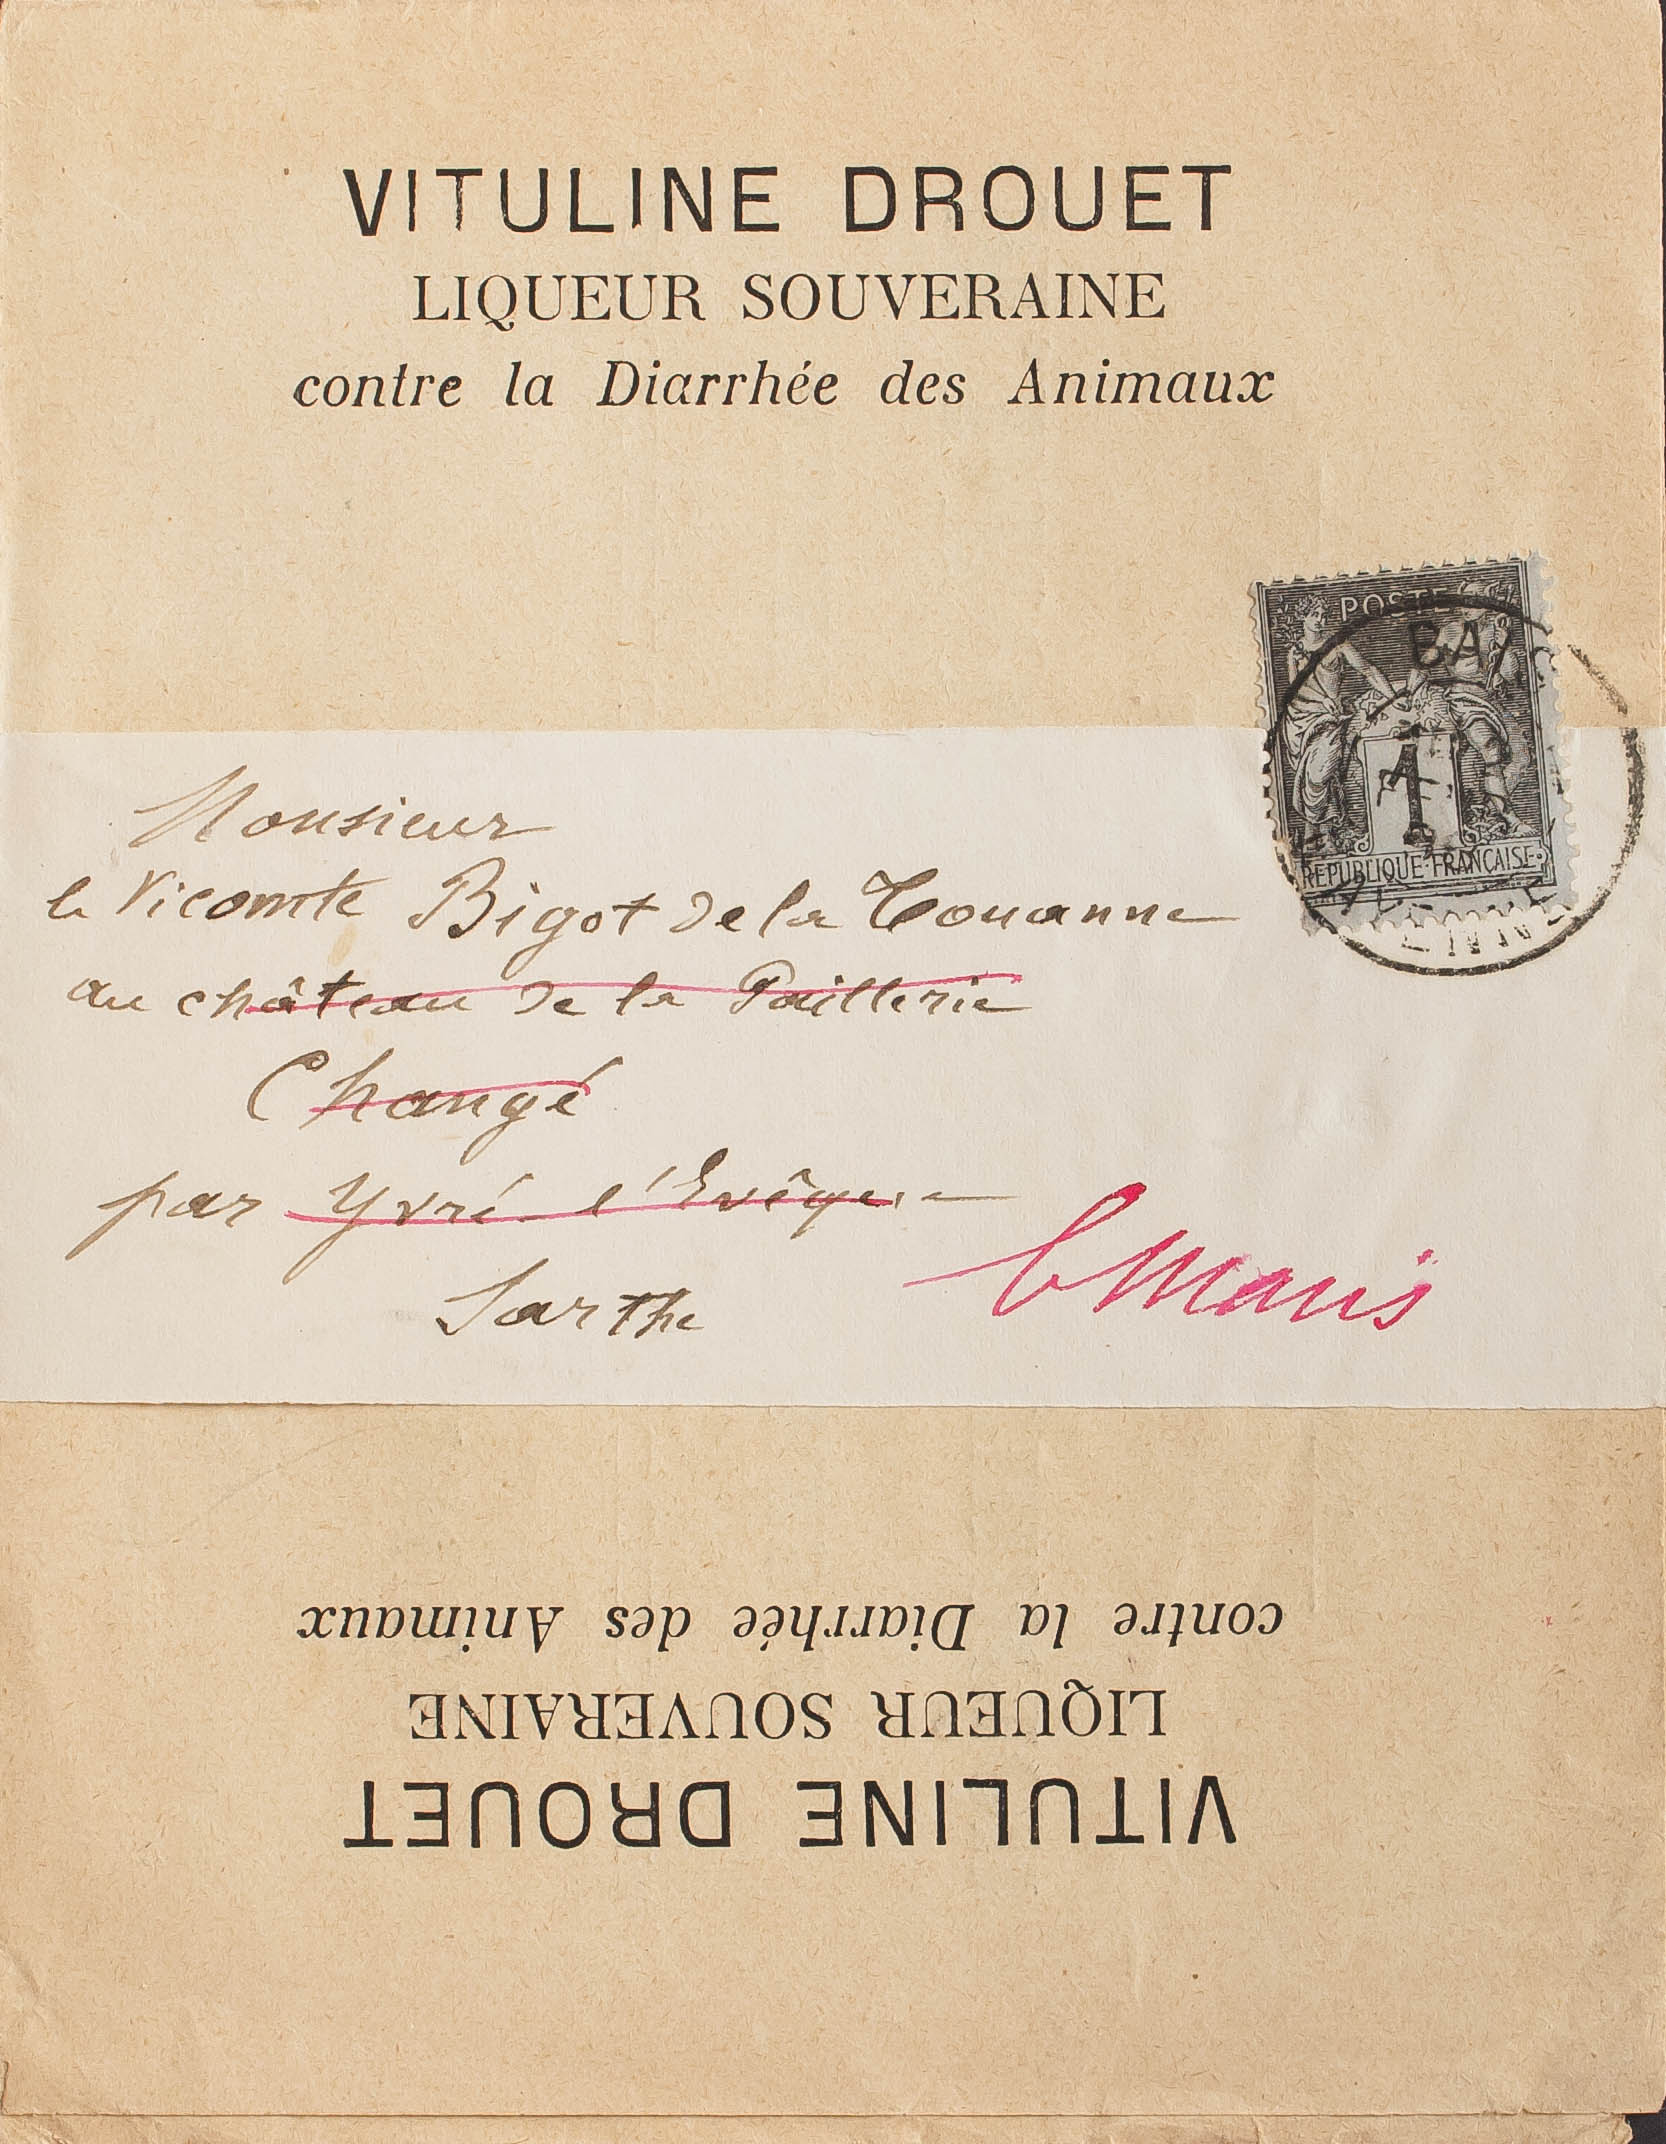 VITULINE DROUET
LIQUEUR SOUVERAINE
contre la Diarrhée des Animaux
POSTE
BA
1
REPUBLIQUE FRANÇAISE
ENNE
Monsieur
le Vicomte Bigot de la Touanne
au château de la Paillerie
Changé
par Yvré l'Evêque
Sarthe
le Mans
contre la Diarrhée des Animaux
LIQUEUR SOUVERAINE
VITULINE DROUET